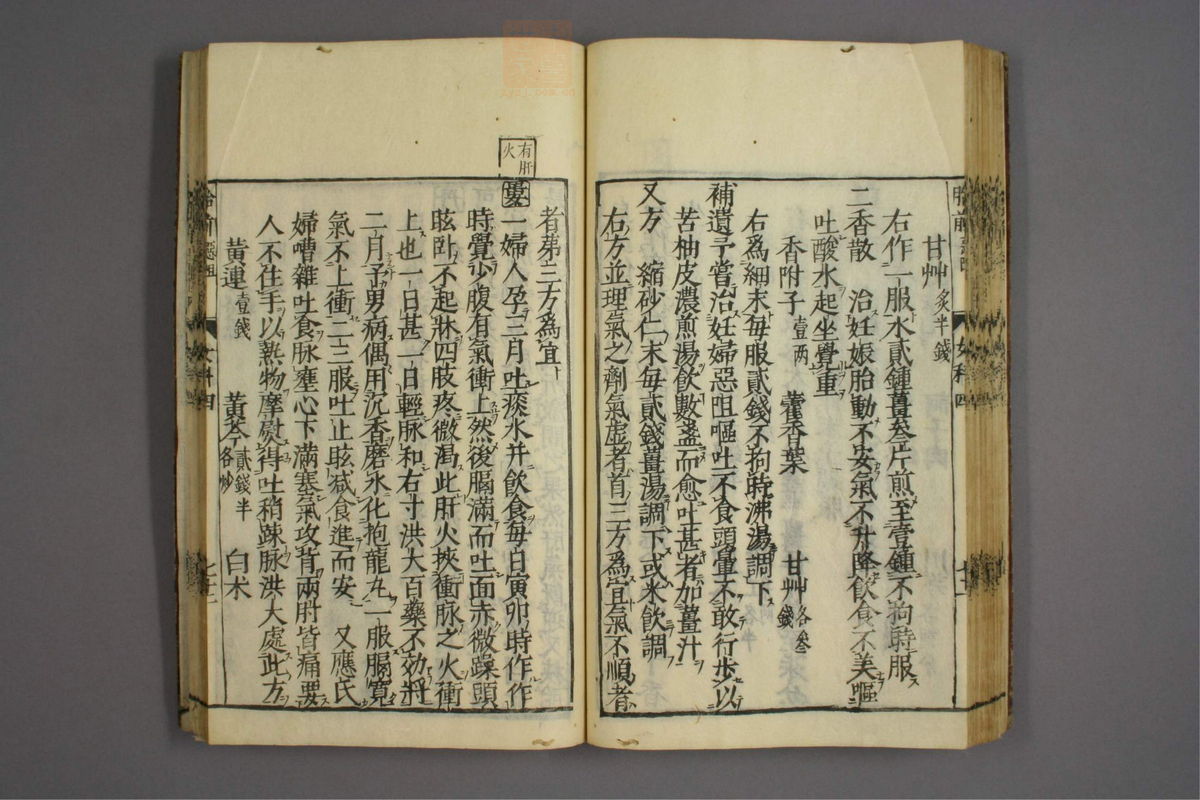 甘艸 炙半錢
右作一服水貳鍾薑叄片煎至壹鍾不拘時服
二香散 治妊娠胎動不安氣不升降飲食不美嘔
吐酸水起坐覺重
香附子 壹两 藿香葉 甘艸 各叄錢
右爲細末每服貳錢不拘時沸湯調下
補遺予嘗治妊婦惡阻嘔吐不食頭暈不敢行步以
苦柚皮濃煎湯飲數盞而愈吐甚者加薑汁
又方 縮砂仁末每貳錢薑湯調下或米飲調
右方並理氣之劑氣虛者首三方爲宜氣不順者
者苐三方爲宜
有肝火
要一婦人孕三月吐痰水并飲食每日寅卯時作作
時覺少腹有氣衝上然後膈滿而吐面赤微躁頭
眩卧不起牀四肢疼微渴此肝火挾衝脉之火衝
上也一日甚一日輕脉和右寸洪大百藥不効將
二月予男病偶用沉香磨水化抱龍丸一服膈寬
氣不上衝二三服吐止眩减食進而安 又應氏
婦嘈雜吐食脉壅心下滿塞氣攻背兩肘皆痛要
人不住手以熱物摩熨得吐稍踈脉洪大處此方
黄連 壹錢 黄芩 貳錢半各炒 白术
胎前 惡阻 女科四